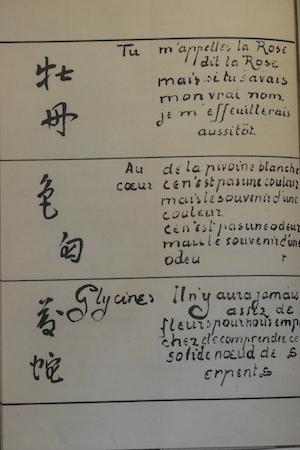 牡
丹
Tu m'appelles la Rose
dit la Rose
mais si tu savais
mon vrai nom
je m'effeuillerais
aussitôt
色
匂
Au de la pivoine blanche
cœur ce n'est pas une couleur
mais le souvenir d'une
couleur
ce n'est pas une odeur
mais le souvenir d'une
odeu r
蛇
Glycines Il n'y aura jamais
assez de
fleurs pour nous emp
cher de comprendre ce
solide nœud de s
erpents